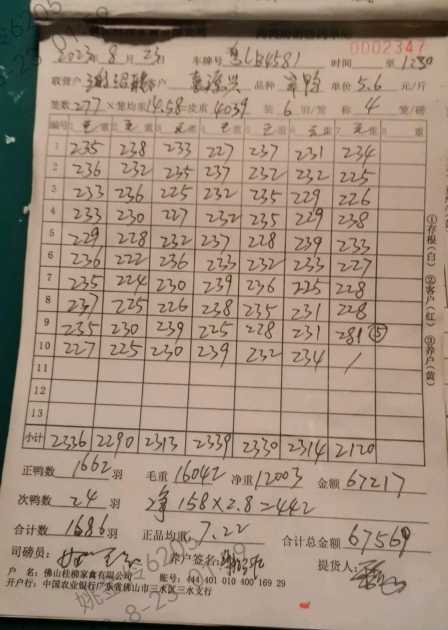 0002347
2023年8月23日 车牌号 时间 至1230
收货户 客户 品种 单价 5.6 元/斤
笼数 277 ×笼均重 14.58 =皮重 4039 装 6 羽/笼 称 4 笼/磅
编号 毛重 毛重 毛重 毛重 毛重 毛重 毛重 重
1 235 238 233 227 237 231 234
2 236 232 235 237 232 232 225
3 233 236 225 232 235 229 226
4 233 230 227 232 235 229 238
5 229 228 232 237 228 239 233
6 236 222 236 233 232 233 227
7 235 224 230 239 236 225 228
8 237 225 226 238 235 231 228
9 235 230 239 225 228 231 281 ⑤
10 227 225 230 239 232 234 /
11
12
13
小计 2336 2290 2313 2339 2330 2314 2120
正鸭数 1662 羽 毛重 16042 净重 12003 金额 67217
次鸭数 24 羽 净 158×2.8=442
合计数 1686 羽 正品均重 7.22 合计总金额 67569
司磅员: 养户签名: 提货人:
户 名:佛山桂柳家禽有限公司 账号:444 401 010 400 169 29
开户行:中国农业银行广东省佛山市三水区三水支行
①存根(白) ②客户(红) ③养户(黄)